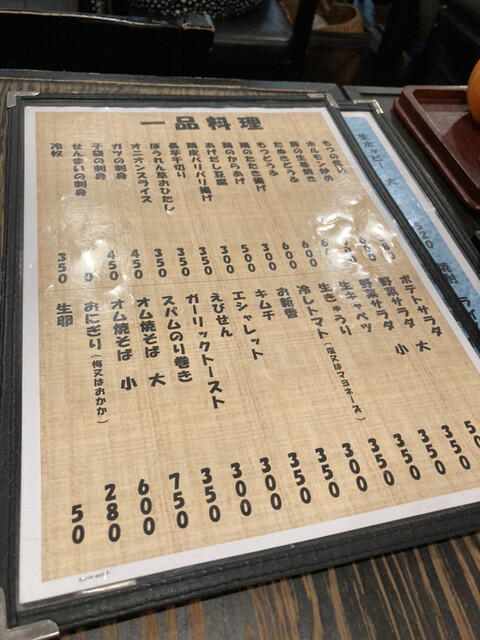 一品料理
ホルモン炒め
豚の生姜焼き
たぬきとうふ
もつとうふ 600
鶏のたたき揚げ 600
鶏のからあげ 300
あげだし豆腐 500
鶏皮パリパリ揚げ 300
長芋千切り 350
ほうれん草おひたし 350
オニオンスライス 350
ガツの刺身 450
子袋の刺身 450
せんまいの刺身
冷奴 350
ポテトサラダ 大
野菜サラダ 小
野菜サラダ
生キャベツ 350
生きゅうり 300
冷しトマト(塩又はマヨネーズ) 350
お新香 350
キムチ 300
エシャレット 300
えびせん 300
ガーリックトースト 350
スパムのり巻き 350
オム焼そば 大 750
オム焼そば 小 600
おにぎり(梅又はおかか) 280
生卵 50
生ホッピー 大 520